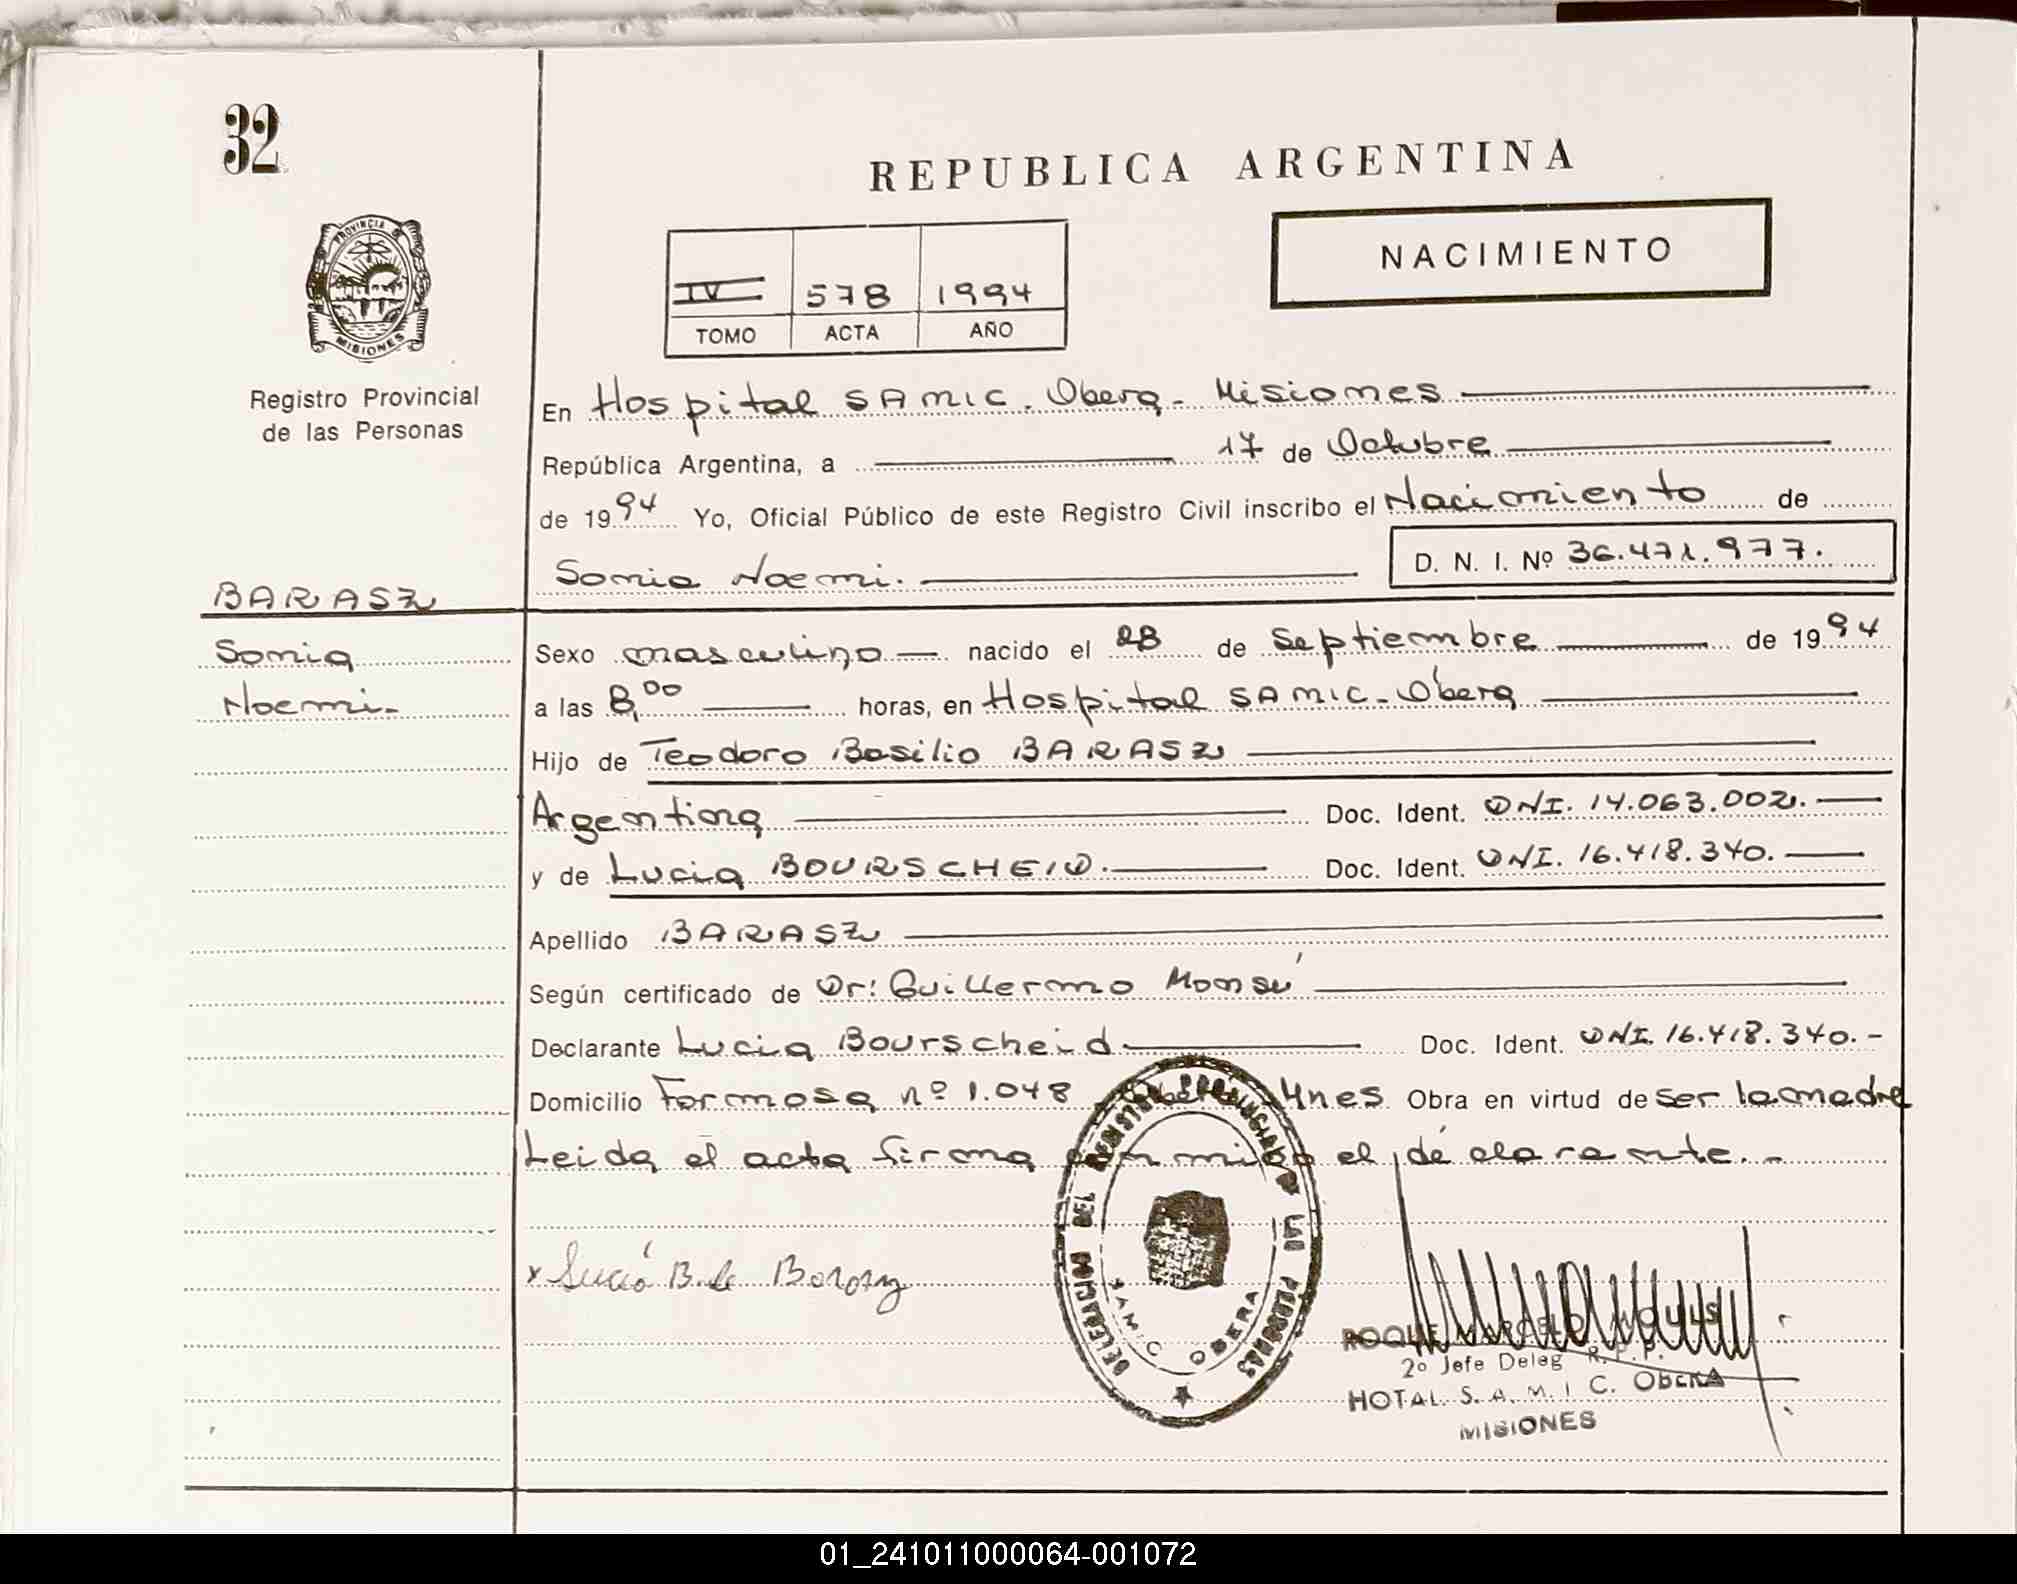 32
REPUBLICA ARGENTINA
PROVINCIA DE
MISIONES
NACIMIENTO
IV 578 1994
TOMO ACTA AÑO
Registro Provincial
de las Personas
En Hospital SAMIC. Obera - Misiones
República Argentina, a 17 de Octubre
de 1994 Yo, Oficial Público de este Registro Civil inscribo el Nacimiento de
Sonia Noemi. D. N. I. Nº 36.471.977.
BARASZ
Sonia
Noemi.-
Sexo masculino nacido el 28 de Septiembre de 1994
a las 8,00 horas, en Hospital SAMIC - Obera
Hijo de Teodoro Basilio BARASZ
Argentina Doc. Ident. DNI. 14.063.002.
y de Lucia BOURSCHEID. Doc. Ident. DNI. 16.418.340.
Apellido BARASZ
Según certificado de Dr: Guillermo
Declarante Lucia Bourscheid Doc. Ident. DNI. 16.418.340.-
Domicilio Formosa nº 1.048 Mnes Obra en virtud de ser la madre
Leida el acta firma conmigo el declarante.-
DELEGACION DEL REGISTRO PROVINCIAL DE LAS PERSONAS
SAMIC OBERA
x Lucia B. de Barasz
ROQUE MARCELO
2º Jefe Deleg R.P.P.
HOTAL. S. A. M. I C. OBERA
MISIONES
01_241011000064-001072